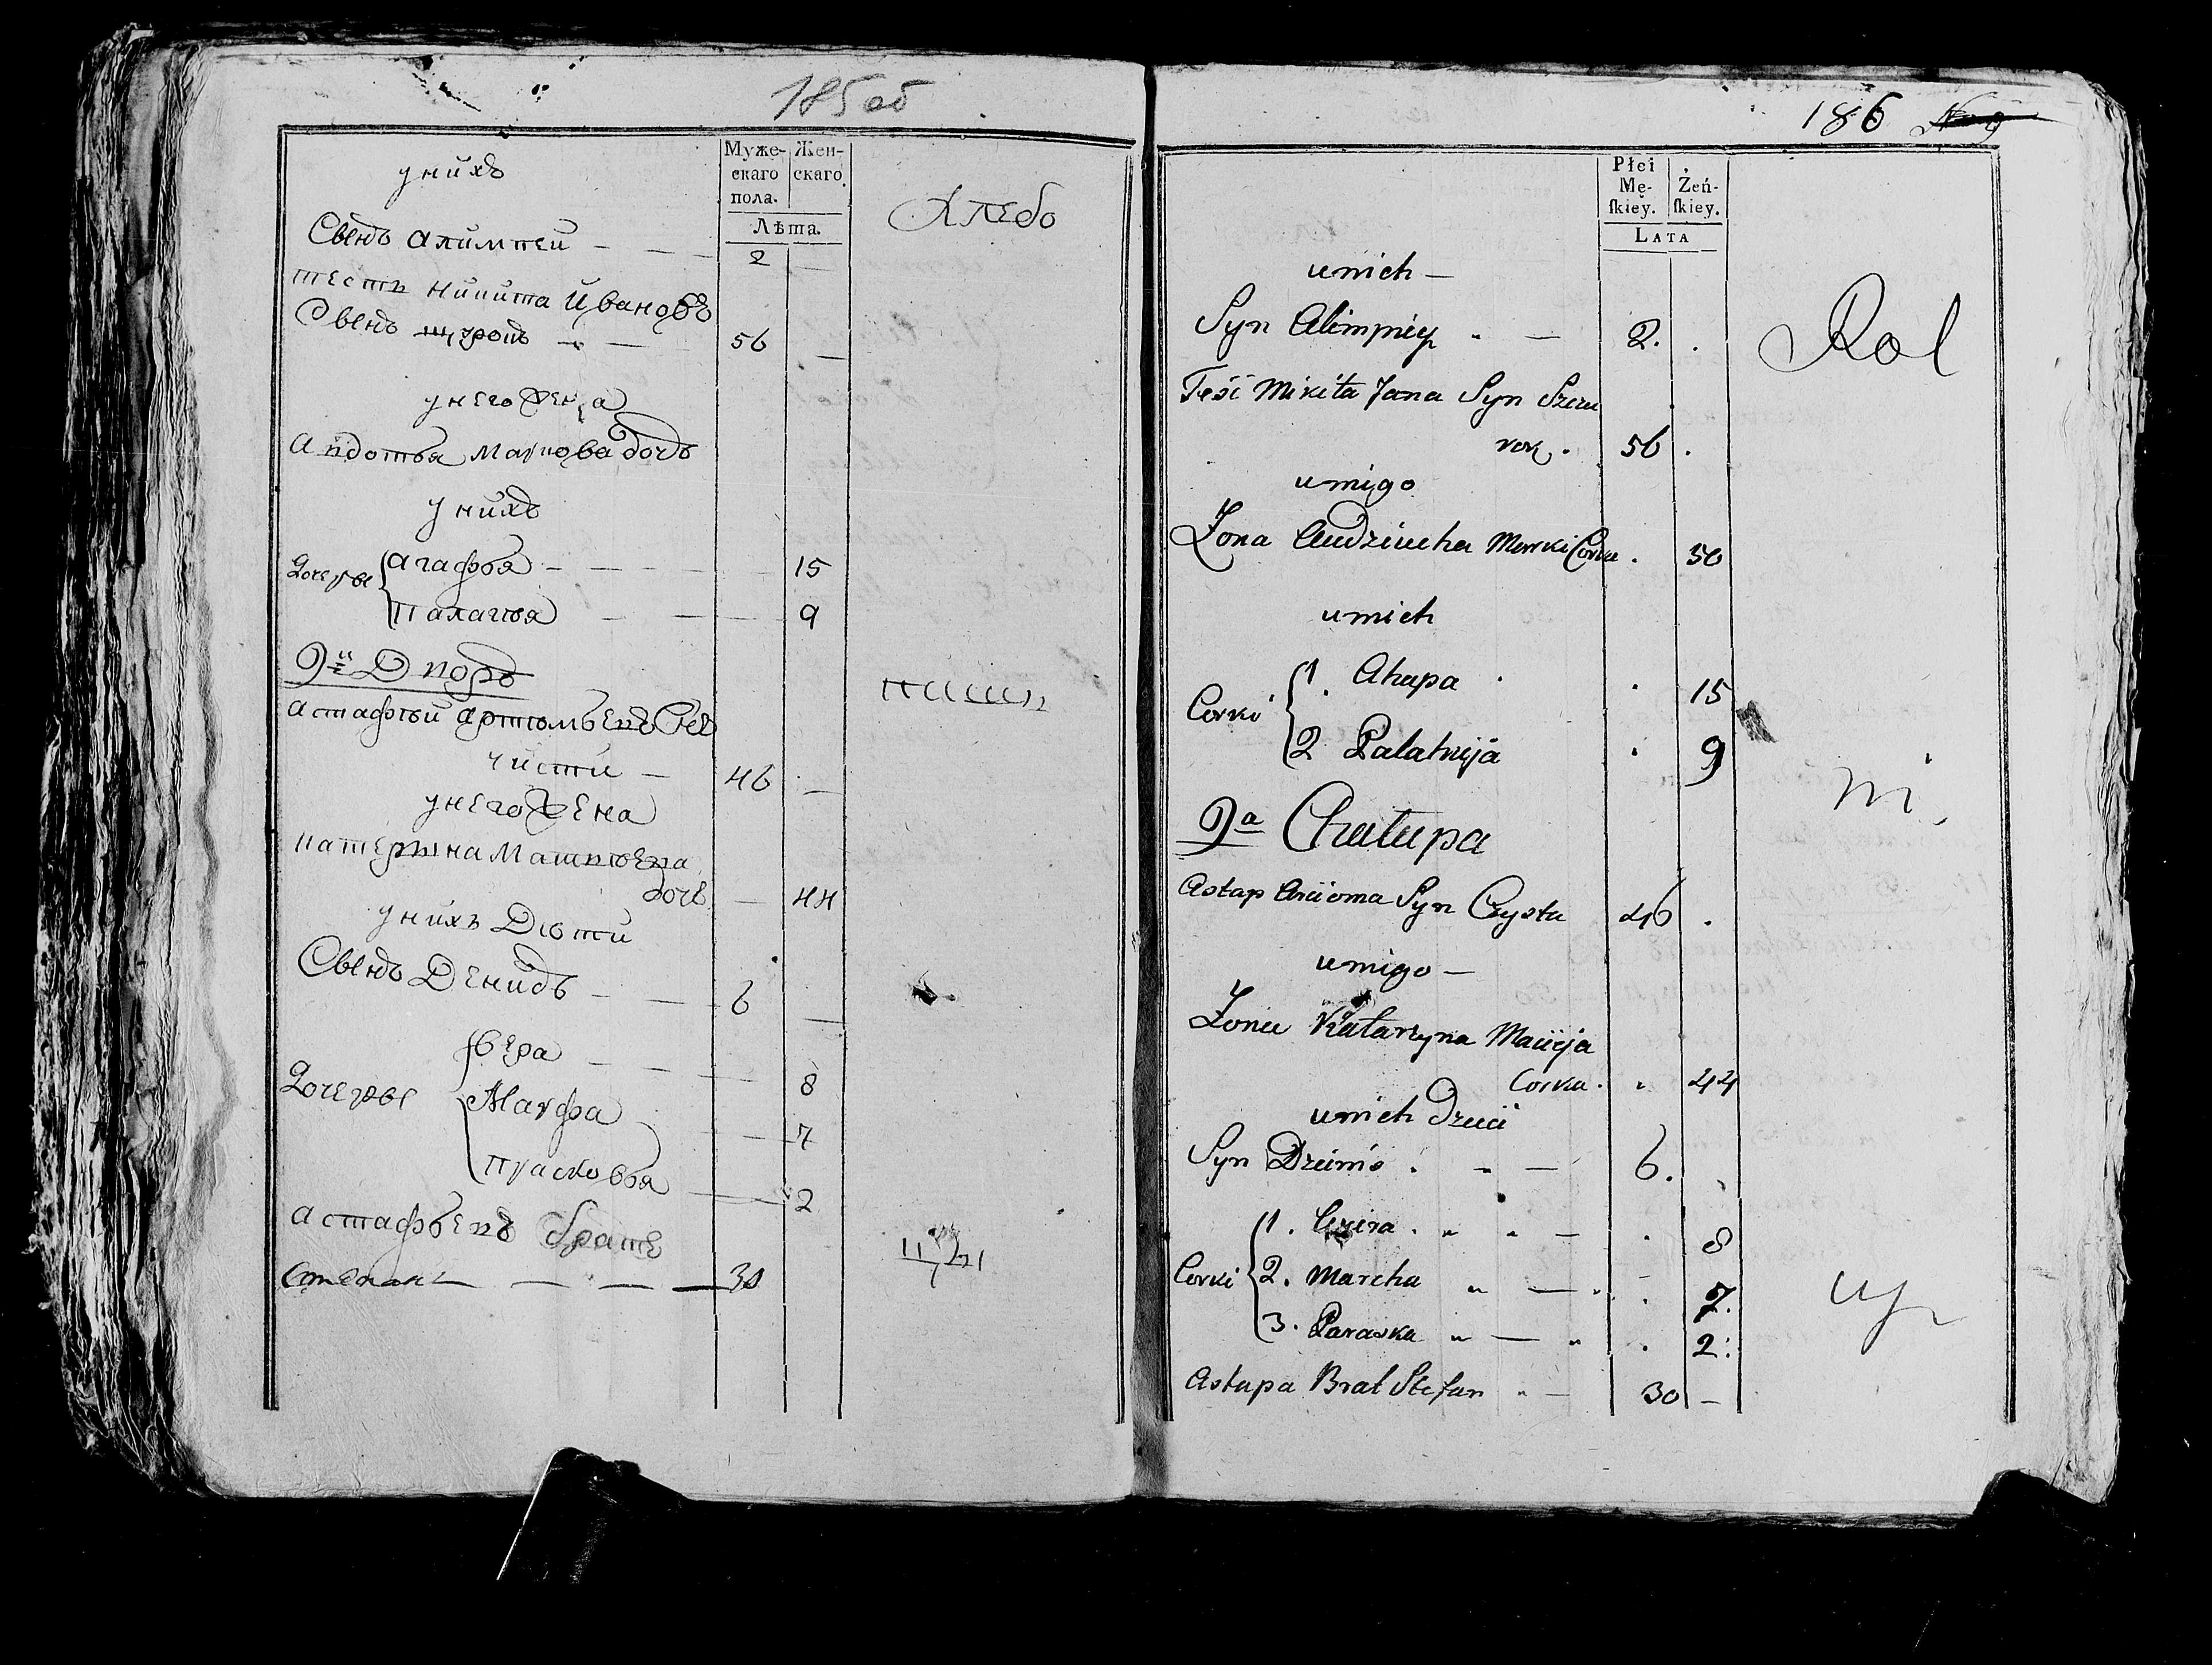 185об
Муже-
скаго
пола.
Жен-
скаго
Лѣта.
у нихъ
Хлебо
Сынъ Алимпей — — 2 —
тесть Никита Ивановъ
Сынъ — — 56 —
у него жена
Авдотья Маркова дочь
у нихъ
Дочеры
Агафья — — — — 15
Палагея — — — 9
9й Дворъ
Астафей Артемьевъ Сынъ
чисти — 46 —
у него жена
Катерына Матвеева
дочь — 44
у нихъ Дети
Сынъ Денидъ — — 6 —
Вера — — — 8
Дочеры
Марфа — — 7
Прасковья — — 2
Астафьевъ братъ
Степанъ — — — — 30
186
Płci
Mę-
skiey.
Żeń-
skiey.
LATA
u nich —
Rol
Syn Alimpiey — 2.
Teść Mikita Jana Syn Szczu
rok. 56
u niego
Żona Audziucha Marki Corka. 50
u nich
Corki
1. Ahapa 15
2 Palahnija 9
ni
9a Chałupa
Astap Arcioma Syn Czysta 46
u niego —
Żona Katarzyna Macieja
Corka. 44
u nich Dzieci
Syn Dzienis — 6.
1. — 8
Corki
2. Marcha — 7.
3. Paraska — 2.
Astapa Brat Stefan — 30 —